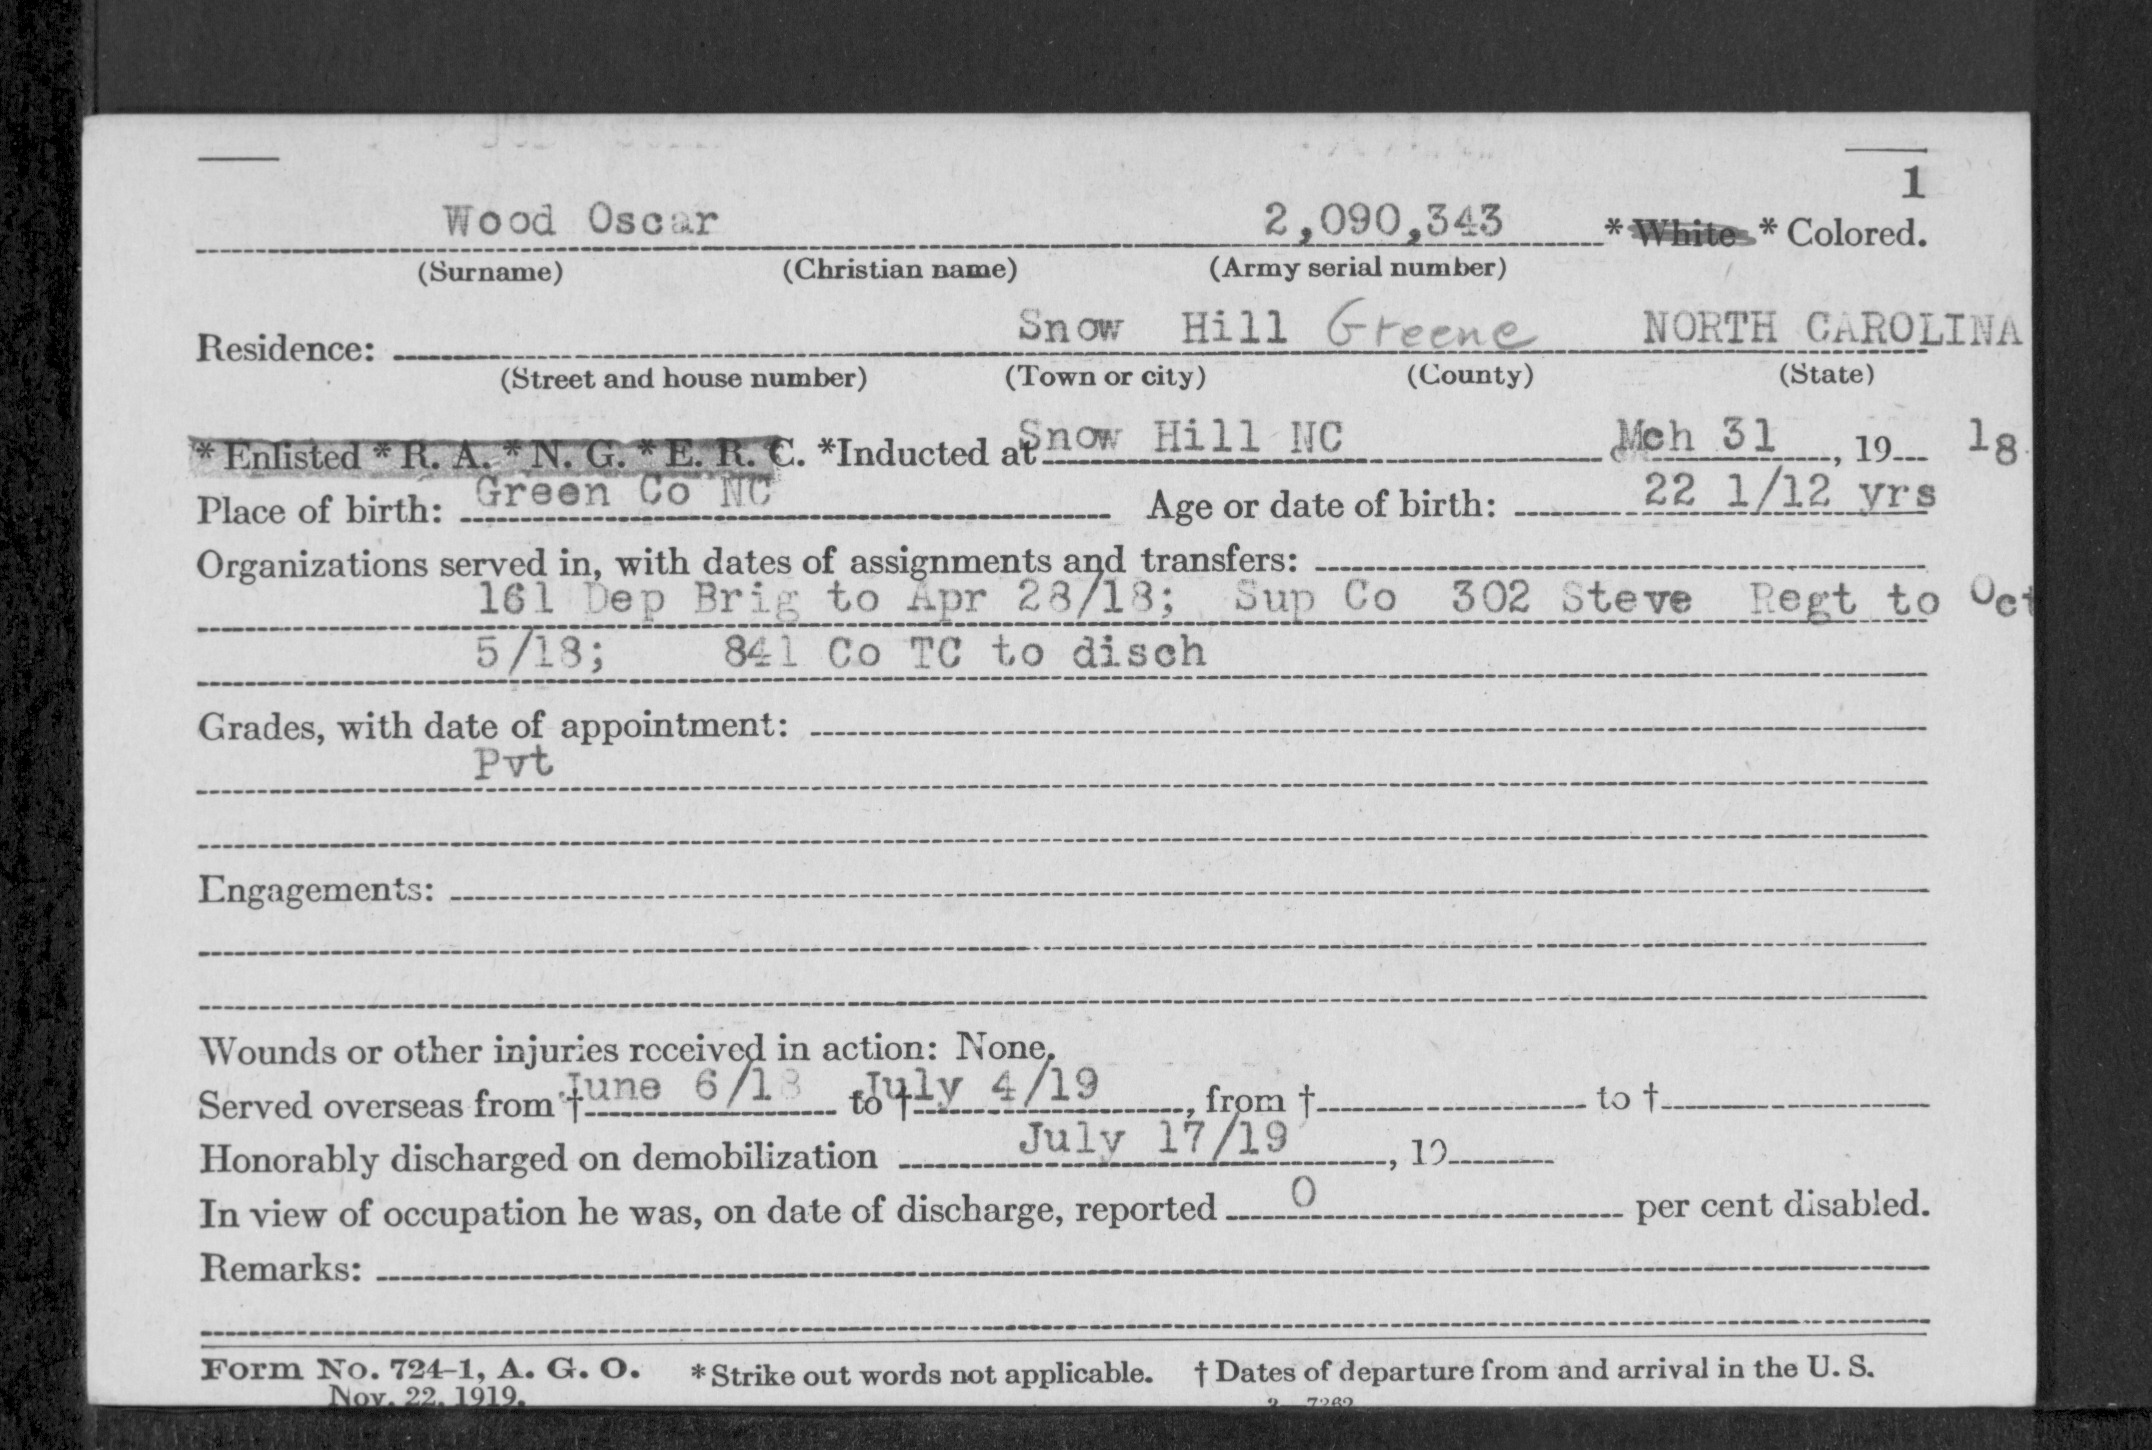 1
Wood Oscar 2,090,343 * White * Colored.
(Surname) (Christian name) (Army serial number)
Residence: Snow Hill Greene NORTH CAROLINA
(Street and house number) (Town or city) (County) (State)
* Enlisted * R. A. * N. G. * E. R. C. *Inducted at Snow Hill NC Mch 31, 19 18
Place of birth: Green Co NC Age or date of birth: 22 1/12 yrs
Organizations served in, with dates of assignments and transfers:
161 Dep Brig to Apr 28/18; Sup Co 302 Steve Regt to Oct
5/18; 841 Co TC to disch
Grades, with date of appointment:
Pvt
Engagements:
Wounds or other injuries received in action: None.
Served overseas from † June 6/18 to † July 4/19, from † to †
Honorably discharged on demobilization July 17/19, 19
In view of occupation he was, on date of discharge, reported 0 per cent disabled.
Remarks:
Form No. 724-1, A. G. O. * Strike out words not applicable. † Dates of departure from and arrival in the U. S.
Nov. 22, 1919.